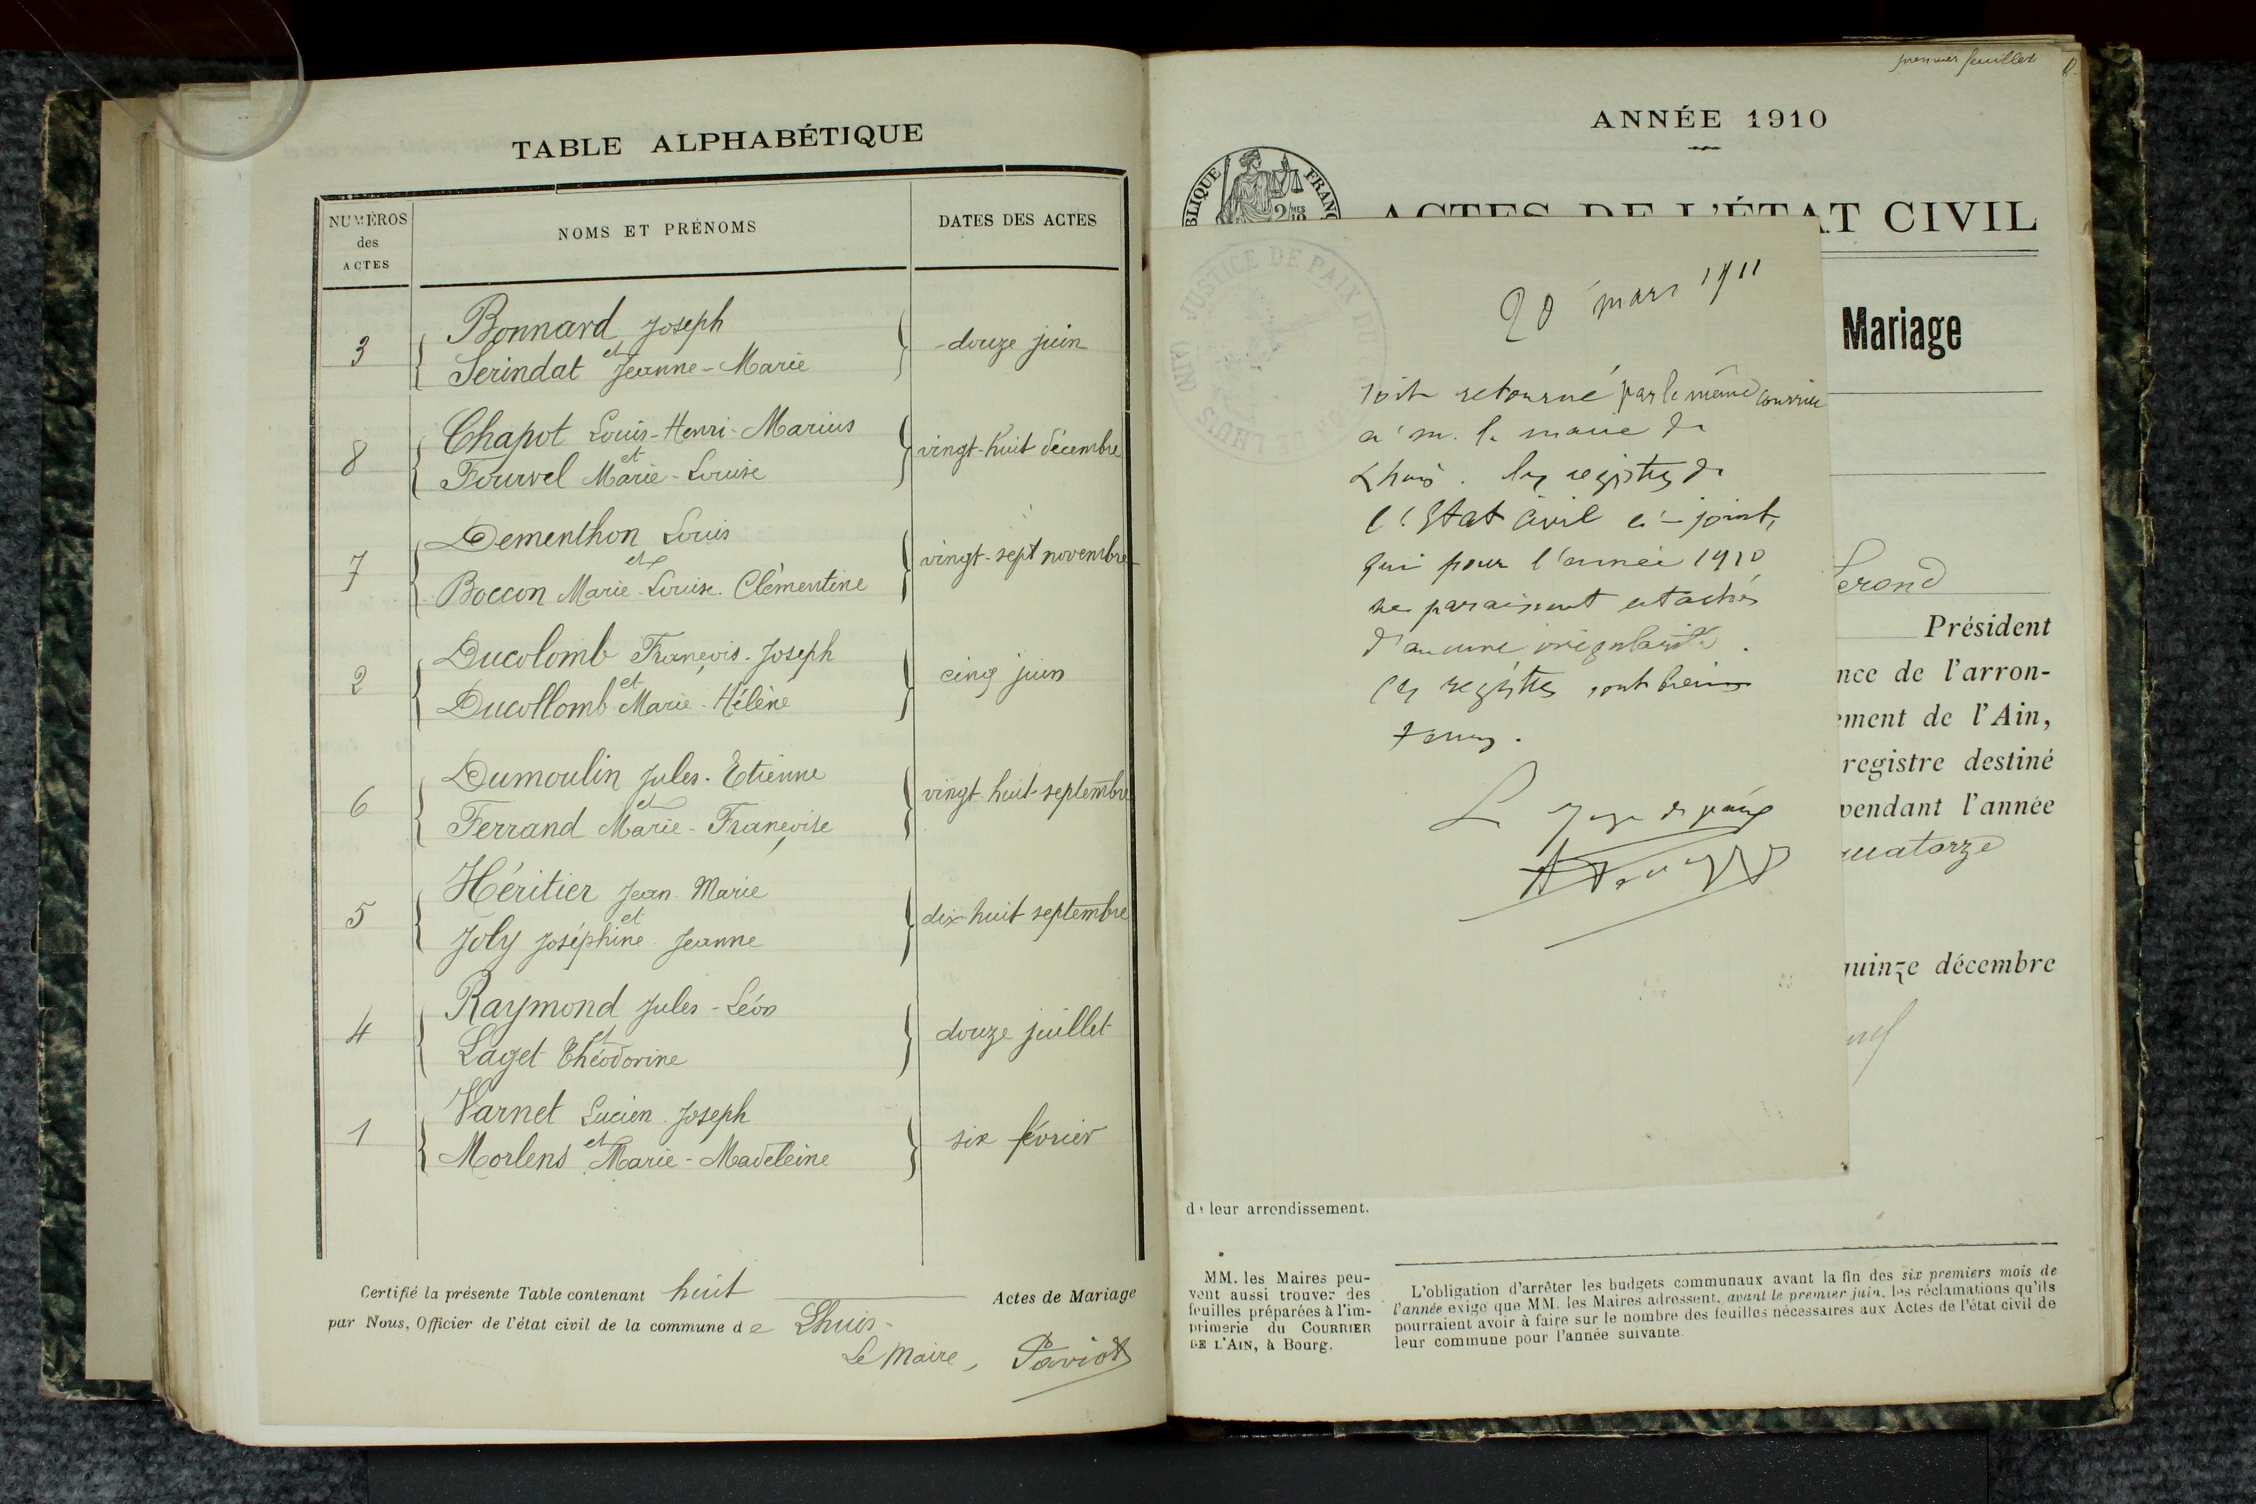 TABLE ALPHABÉTIQUE
NUMÉROS
des
ACTES
NOMS ET PRÉNOMS
DATES DES ACTES
3
Bonnard Joseph
et
Serindat Jeanne-Marie
douze juin
8
Chapot Louis-Henri-Marius
et
Fourvel Marie-Louise
vingt-huit décembre
7
Dementhon Louis
et
Boccon Marie-Louise-Clémentine
vingt-sept novembre
2
Ducolomb François-Joseph
et
Ducollomb Marie-Hélène
cinq juin
6
Dumoulin Jules-Etienne
et
Ferrand Marie-Françoise
vingt-huit-septembre
5
Héritier Jean-Marie
et
Joly Joséphine-Jeanne
dix-huit septembre
4
Raymond Jules-Léon
et
Laget Théodorine
douze juillet
1
Varnet Lucien-Joseph
et
Morlens Marie-Madeleine
six février
Certifié la présente Table contenant huit Actes de Mariage
par Nous, Officier de l'état civil de la commune de Lhuis-
Le Maire, Paviot
premier feuillet
ANNÉE 1910
BLIQUE FRANÇ
2/10 MES
ACTES DE L'ÉTAT CIVIL
Mariage
JUSTICE DE PAIX DU
DE LHUIS (AIN)
20 mars 1911
soit retourné par le même courrier
a m. le maire de
Lhuis. les registres de
l'Etat civil ci-joint,
qui pour l'année 1910
ne paraissent entachés
d'aucune irrégularité.
ces registres sont bien
tenus.
Le Juge de paix
erond
Président
nce de l'arron-
ement de l'Ain,
registre destiné
pendant l'année
quatorze
quinze décembre
de leur arrondissement.
MM. les Maires peu-
vent aussi trouver des
feuilles préparées à l'im-
primerie du COURRIER
DE L'AIN, à Bourg.
L'obligation d'arrêter les budgets communaux avant la fin des six premiers mois de
l'année exige que MM. les Maires adressent, avant le premier juin, les réclamations qu'ils
pourraient avoir à faire sur le nombre des feuilles nécessaires aux Actes de l'état civil de
leur commune pour l'année suivante.